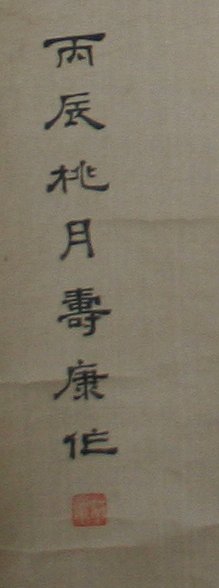 丙辰桃月壽康作